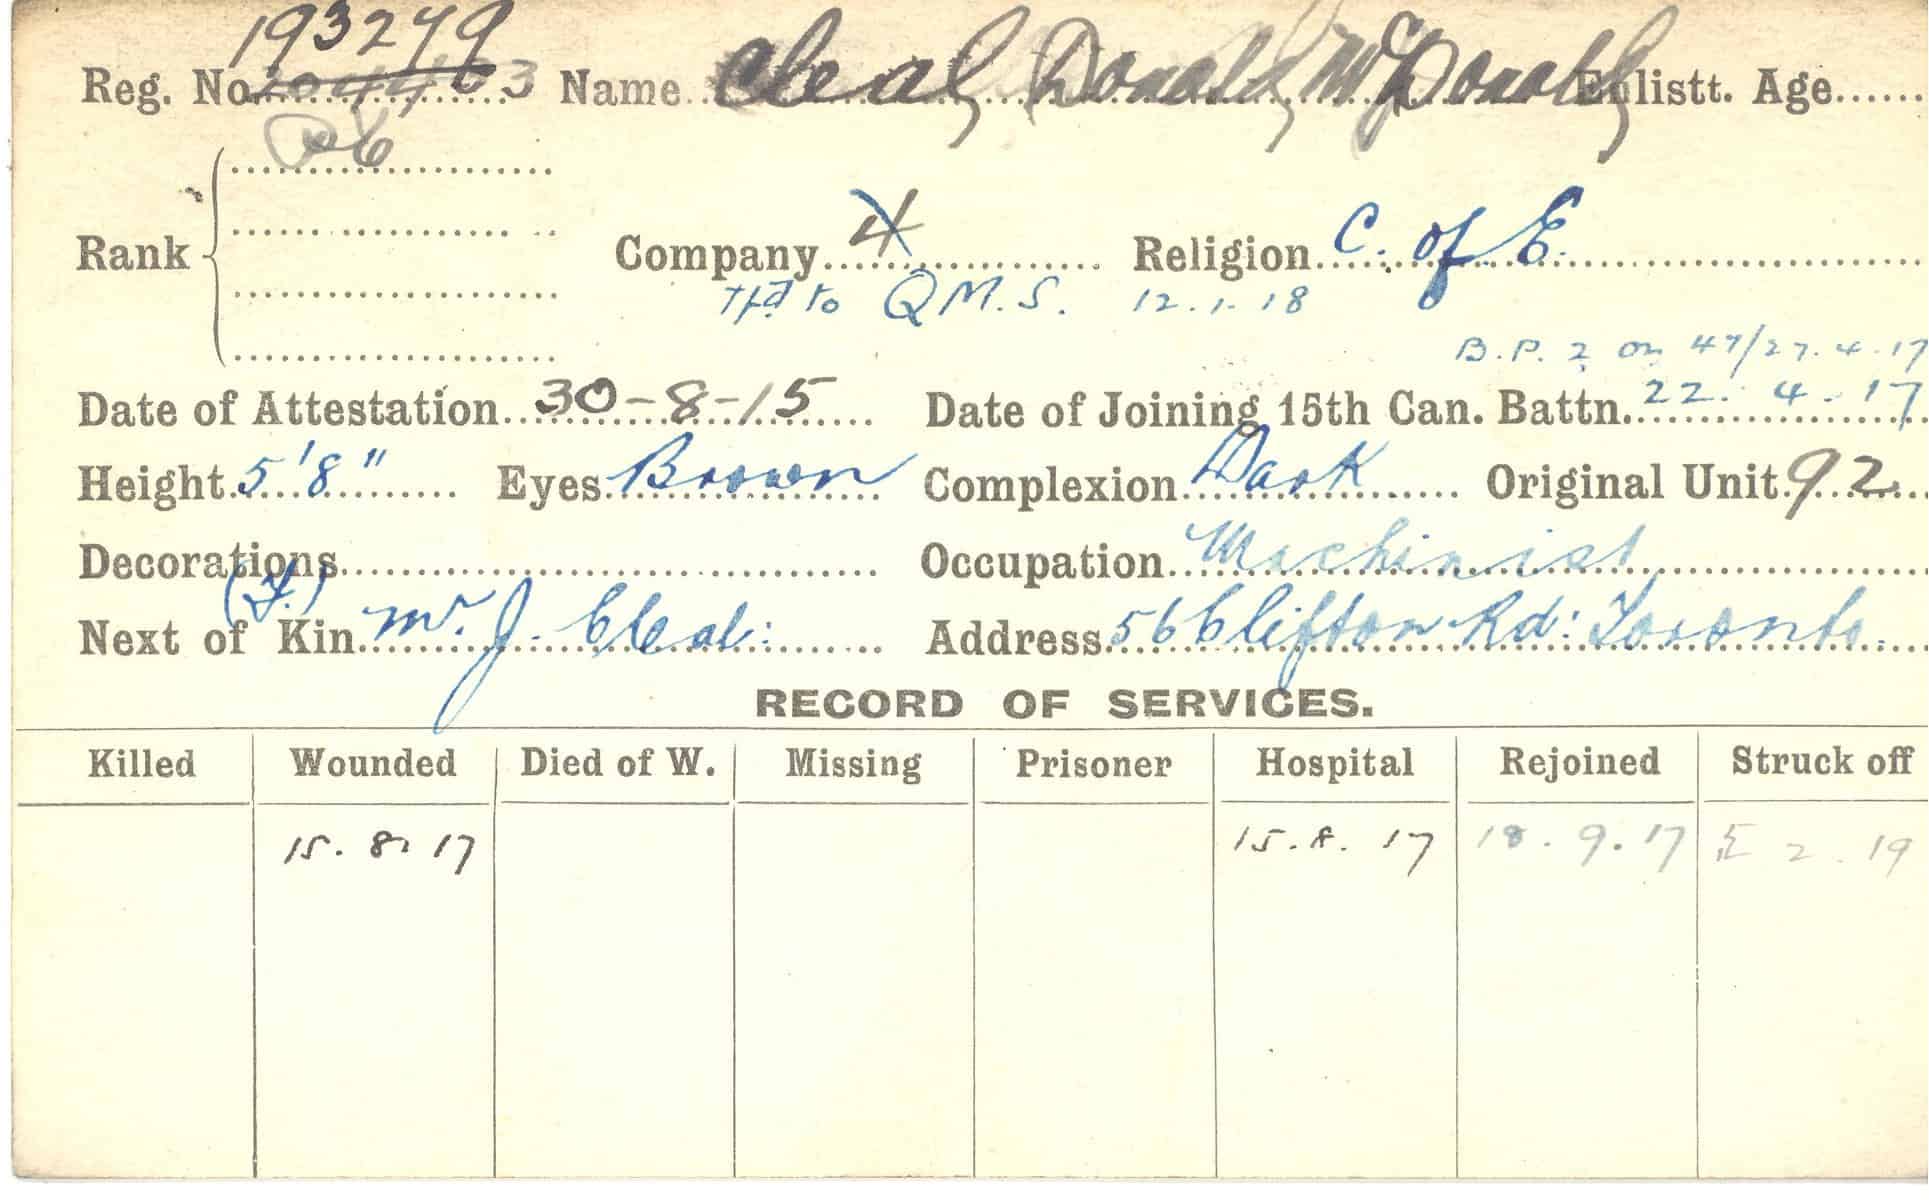 193279
Reg. No. Name Cleal, Donald McDonald, Enlistt. Age
Pte
Rank Company 4 Religion C. of E.
Tfd to Q M. S. 12. 1. 18
B. P. 2 on 47/27. 4. 17
Date of Attestation 30-8-15 Date of Joining 15th Can. Battn. 22. 4. 17
Height 5'8" Eyes Brown Complexion Dark Original Unit 92
Decorations Occupation Machinist
(F.)
Next of Kin Mr. J. Cleal: Address 56 Clifton Rd: Toronto.
RECORD OF SERVICES.
Killed Wounded Died of W. Missing Prisoner Hospital Rejoined Struck off
15. 8. 17 15. 8. 17 18. 9. 17 2. 19